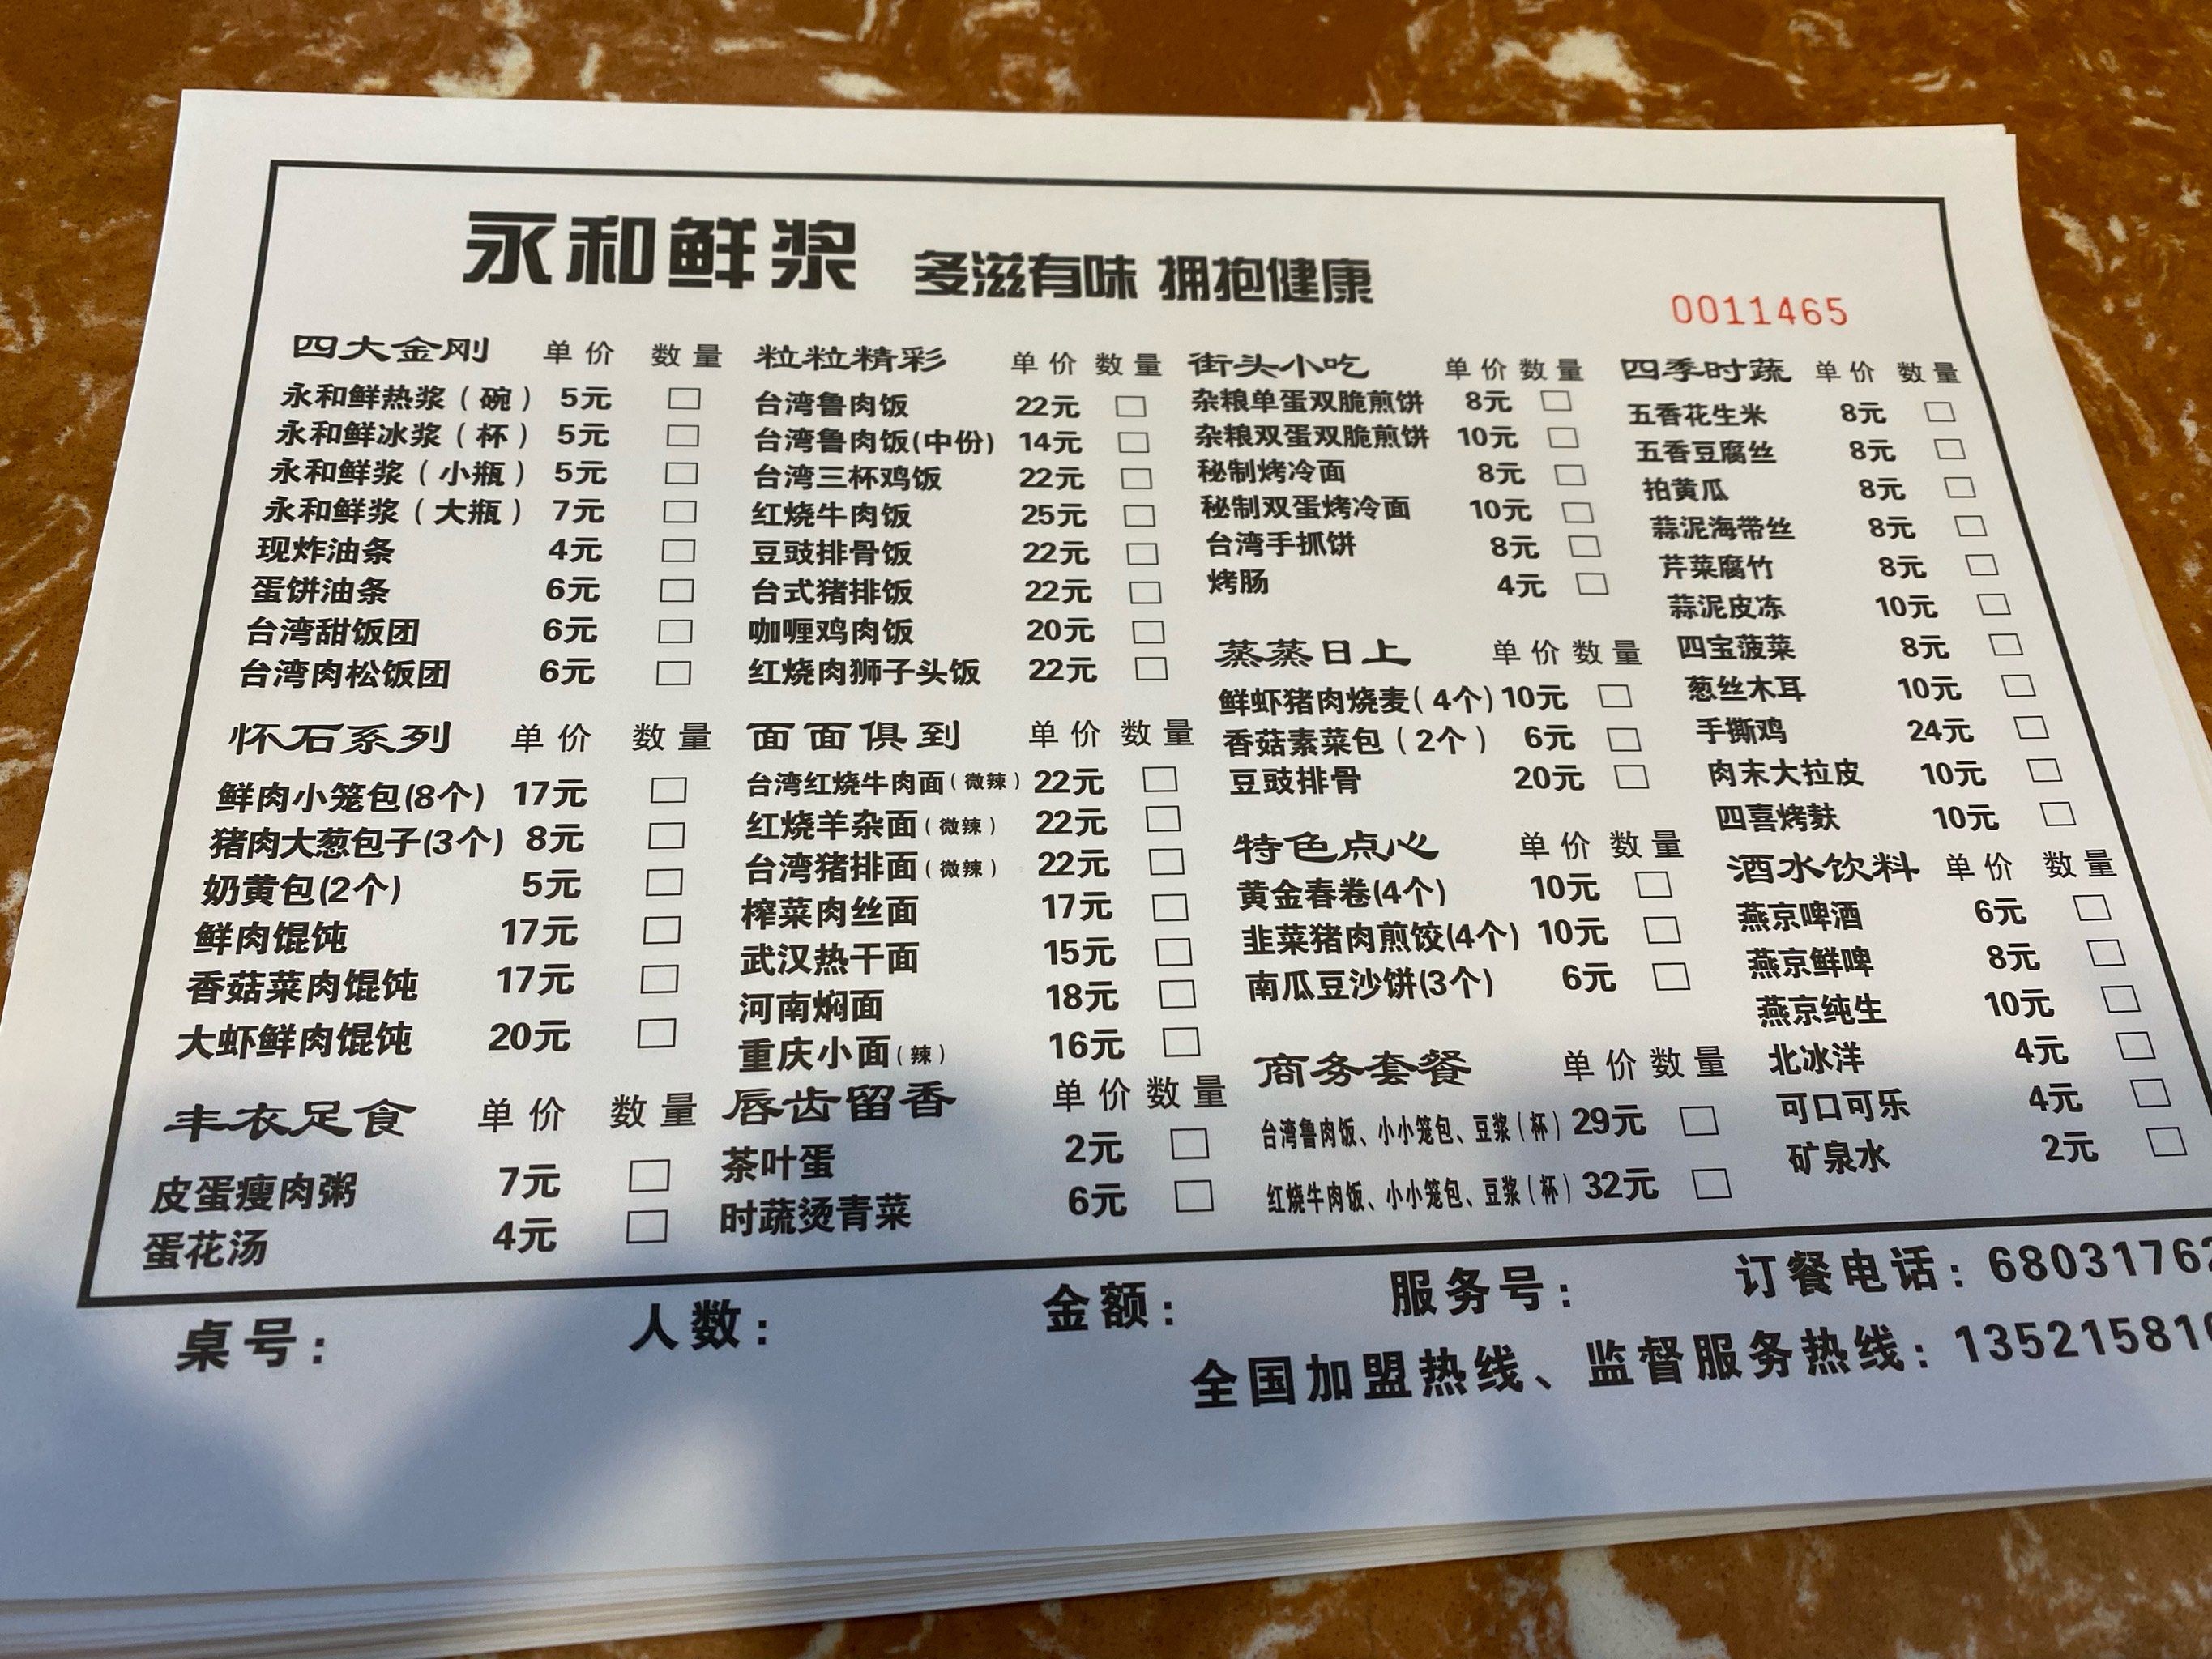 永和鲜浆 多滋有味 拥抱健康
0011465
四大金刚 单价 数量
永和鲜热浆（碗） 5元
永和鲜冰浆（杯） 5元
永和鲜浆（小瓶） 5元
永和鲜浆（大瓶） 7元
现炸油条 4元
蛋饼油条 6元
台湾甜饭团 6元
台湾肉松饭团 6元
怀石系列 单价 数量
鲜肉小笼包(8个) 17元
猪肉大葱包子(3个) 8元
奶黄包(2个) 5元
鲜肉馄饨 17元
香菇菜肉馄饨 17元
大虾鲜肉馄饨 20元
丰衣足食 单价 数量
皮蛋瘦肉粥 7元
蛋花汤 4元
粒粒精彩 单价 数量
台湾鲁肉饭 22元
台湾鲁肉饭(中份) 14元
台湾三杯鸡饭 22元
红烧牛肉饭 25元
豆豉排骨饭 22元
台式猪排饭 22元
咖喱鸡肉饭 20元
红烧肉狮子头饭 22元
面面俱到 单价 数量
台湾红烧牛肉面（微辣） 22元
红烧羊杂面（微辣） 22元
台湾猪排面（微辣） 22元
榨菜肉丝面 17元
武汉热干面 15元
河南焖面 18元
重庆小面（辣） 16元
唇齿留香 单价 数量
茶叶蛋 2元
时蔬烫青菜 6元
街头小吃 单价 数量
杂粮单蛋双脆煎饼 8元
杂粮双蛋双脆煎饼 10元
秘制烤冷面 8元
秘制双蛋烤冷面 10元
台湾手抓饼 8元
烤肠 4元
蒸蒸日上 单价 数量
鲜虾猪肉烧麦（4个） 10元
香菇素菜包（2个） 6元
豆豉排骨 20元
特色点心 单价 数量
黄金春卷(4个) 10元
韭菜猪肉煎饺(4个) 10元
南瓜豆沙饼(3个) 6元
商务套餐 单价 数量
台湾鲁肉饭、小小笼包、豆浆（杯） 29元
红烧牛肉饭、小小笼包、豆浆（杯） 32元
四季时蔬 单价 数量
五香花生米 8元
五香豆腐丝 8元
拍黄瓜 8元
蒜泥海带丝 8元
芹菜腐竹 8元
蒜泥皮冻 10元
四宝菠菜 8元
葱丝木耳 10元
手撕鸡 24元
肉末大拉皮 10元
四喜烤麸 10元
酒水饮料 单价 数量
燕京啤酒 6元
燕京鲜啤 8元
燕京纯生 10元
北冰洋 4元
可口可乐 4元
矿泉水 2元
桌号： 人数： 金额： 服务号： 订餐电话：68031762
全国加盟热线、监督服务热线：135215810